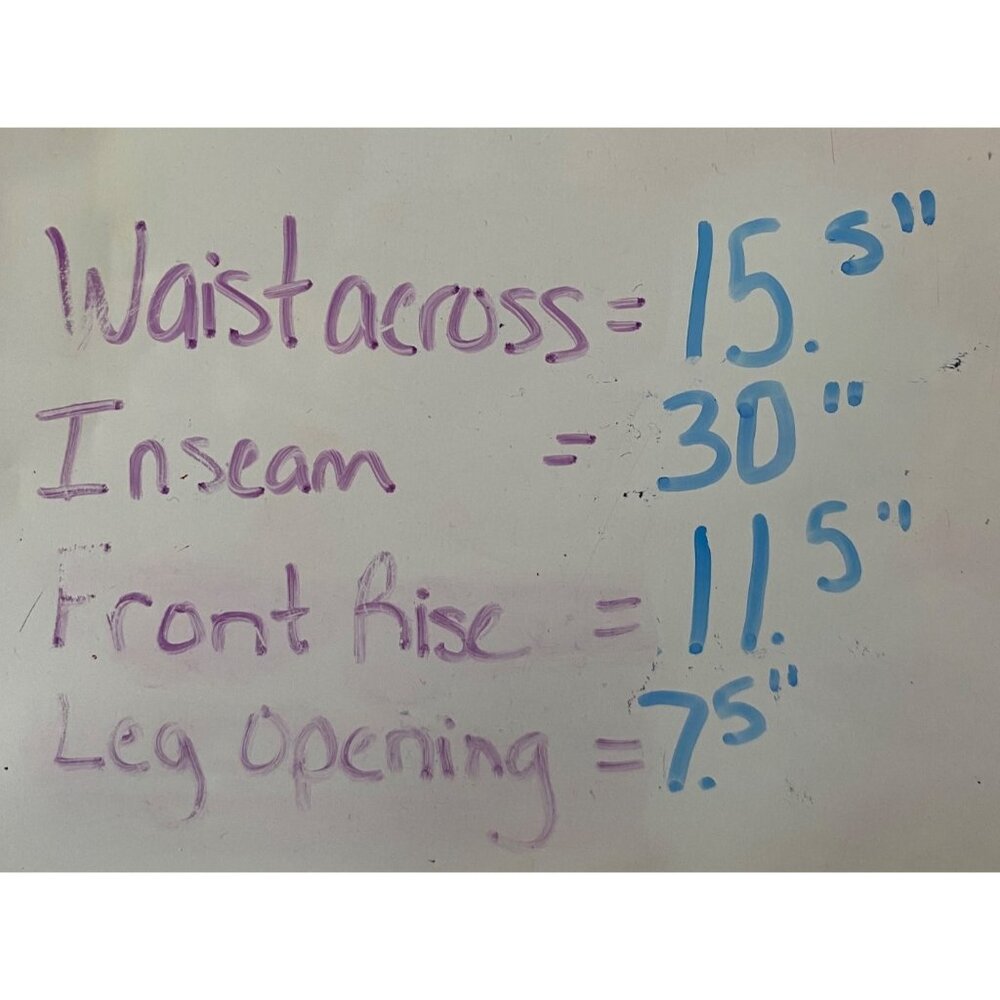 Waist across = 15.5"
Inseam = 30"
Front Rise = 11.5"
Leg Opening = 7.5"